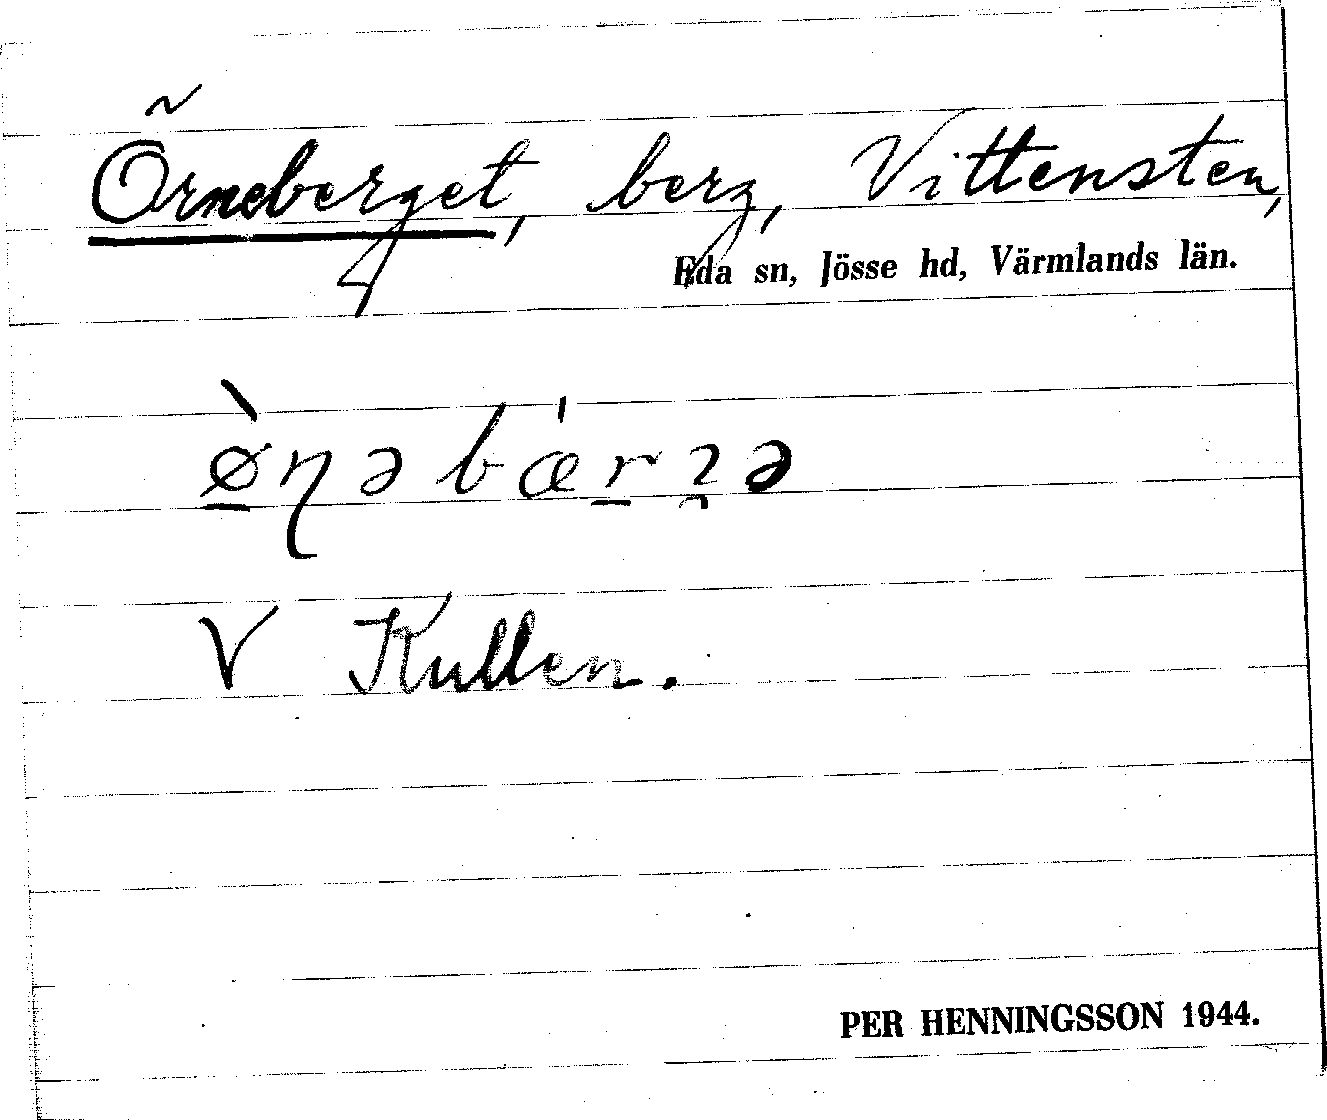 Örneberget, berg, Vittensten,
Eda sn, Jösse hd, Värmlands län.
ø̠̀ɳəbǽr̠ʓə
V Kullen.
PER HENNINGSSON 1944.